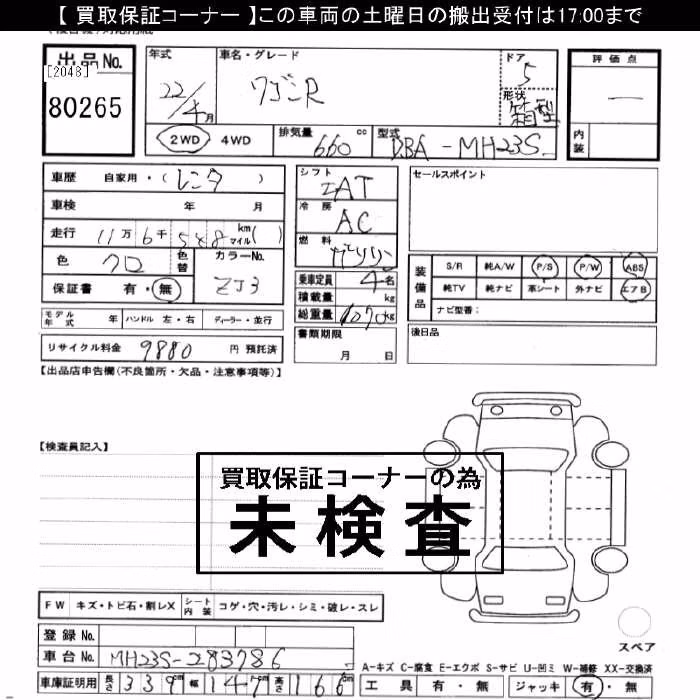 【 買取保証コーナー 】この車両の土曜日の搬出受付は17:00まで
出品No.
[2048]
80265
年式
22/4月
車名・グレード
ワゴンR
ドア
5
形状
箱型
評価点
—
内装
2WD 4WD
排気量
660 cc
型式
DBA-MH23S
車歴 自家用・(レンタ)
車検 年 月
走行 11万6千548 km マイル( )
色 クロ 色替 カラーNo. ZJ3
保証書 有・無
シフト
IAT
冷房
AC
燃料
ガソリン
乗車定員 4名
積載量 kg
総重量 1070kg
書類期限
月 日
セールスポイント
装備品
S/R 純A/W P/S P/W ABS
純TV 純ナビ 革シート 外ナビ エアB
ナビ型番:
後日品
モデル年式 年 ハンドル 左・右 ディーラー・並行
リサイクル料金 9880 円 預託済
【出品店申告欄(不良箇所・欠品・注意事項等)】
【検査員記入】
買取保証コーナーの為
未検査
FW キズ・トビ石・割レX シート内装 コゲ・穴・汚レ・シミ・破レ・スレ
スペア
登録 No.
車台 No. MH23S-283786
車庫証明用 長さ 339cm 幅 147cm 高さ 166cm
A-キズ C-腐食 E-エクボ S-サビ U-凹ミ W-補修 XX-交換済
工具 有・無 ジャッキ 有・無